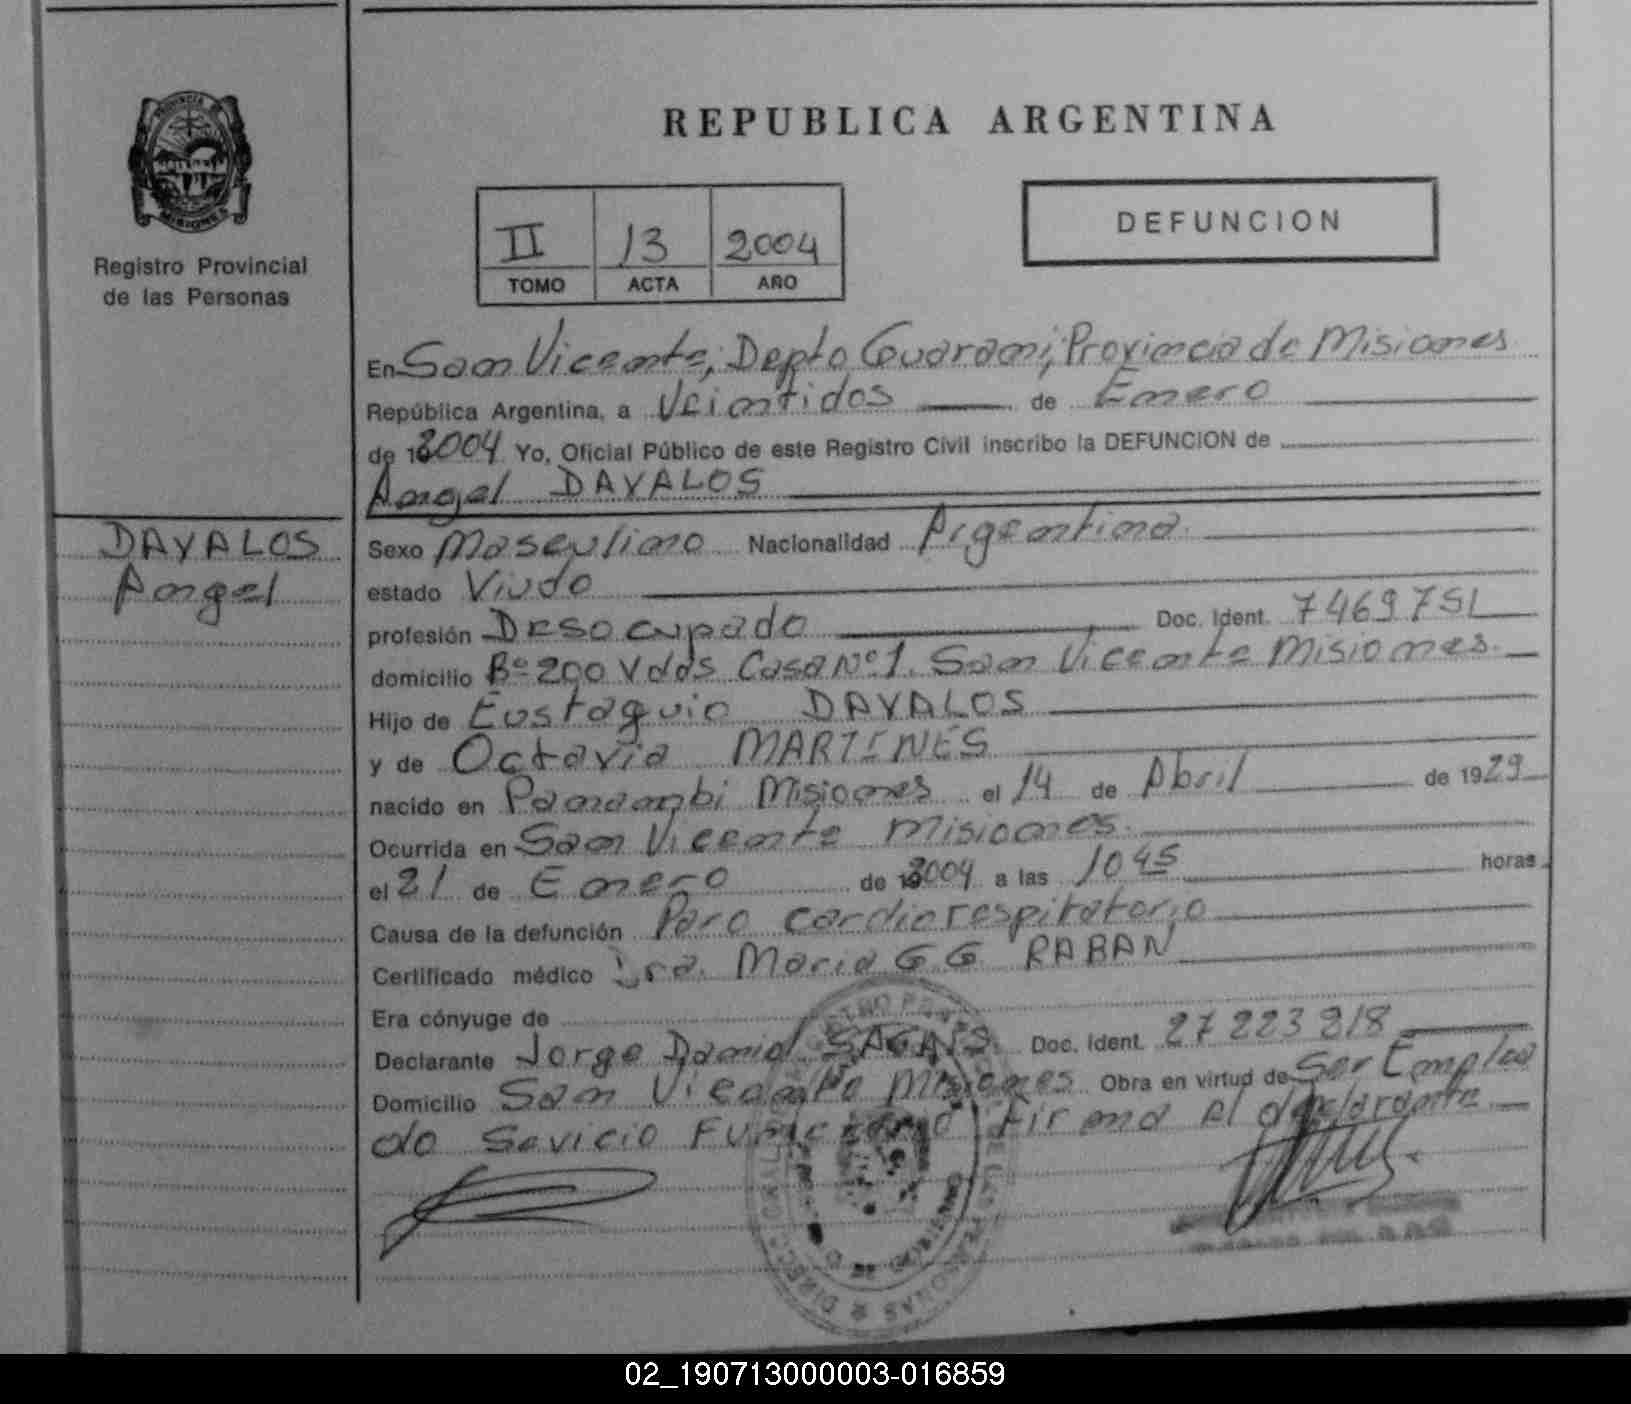 REPUBLICA ARGENTINA
PROVINCIA DE
MISIONES
Registro Provincial
de las Personas
II 13 2004
TOMO ACTA AÑO
DEFUNCION
En San Vicente, Depto Guarani, Provincia de Misiones
República Argentina, a Veintidos de Enero
de 2004 Yo, Oficial Público de este Registro Civil inscribo la DEFUNCION de
Angel DAVALOS
DAVALOS
Angel
Sexo Masculino Nacionalidad Argentina
estado Viudo
profesión Desocupado Doc. Ident. 7469751
domicilio Bº 200 Vdas Casa Nº 1. San Vicente Misiones.
Hijo de Eustaquio DAVALOS
y de Octavia MARTINES
nacido en Panambi Misiones el 14 de Abril de 1929
Ocurrida en San Vicente Misiones.
el 21 de Enero de 2004 a las 1045 horas
Causa de la defunción Paro cardiorespitatorio
Certificado médico Dra. Maria G.G. RABAN
Era cónyuge de
Declarante Jorge Daniel Doc. Ident. 27 223 218
Domicilio San Vicente Misiones Obra en virtud de Ser Emplea
do Sevicio Funerario Firma el declarante
02_190713000003-016859